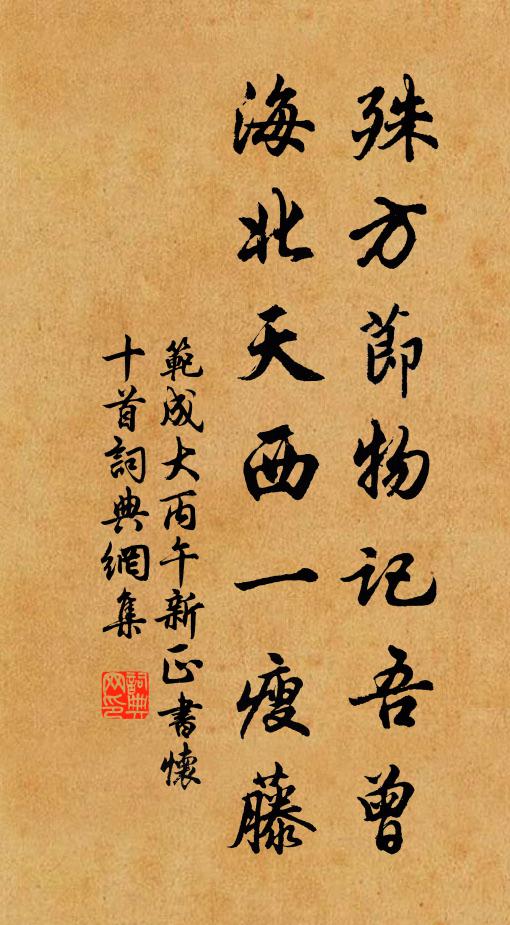 殊方節物記吾曾
海北天西一瘦藤
範成大丙午新正書懷
十首詞典網集
詞典网印